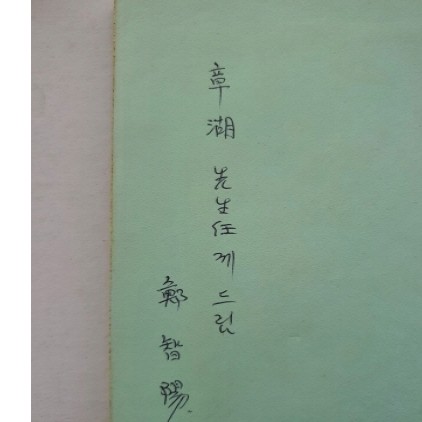 章湖 先生任께 드림
鄭智陽